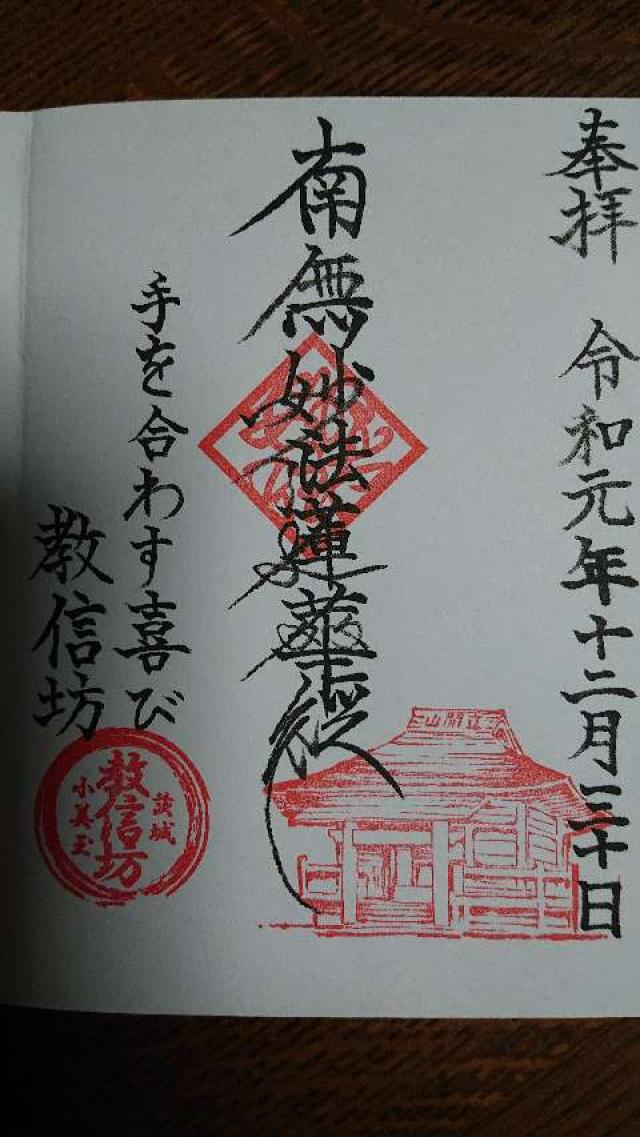 奉拝 令和元年十二月三十日
南無妙法蓮華経
手を合わす喜び
教信坊
茨城
教信坊
小美玉